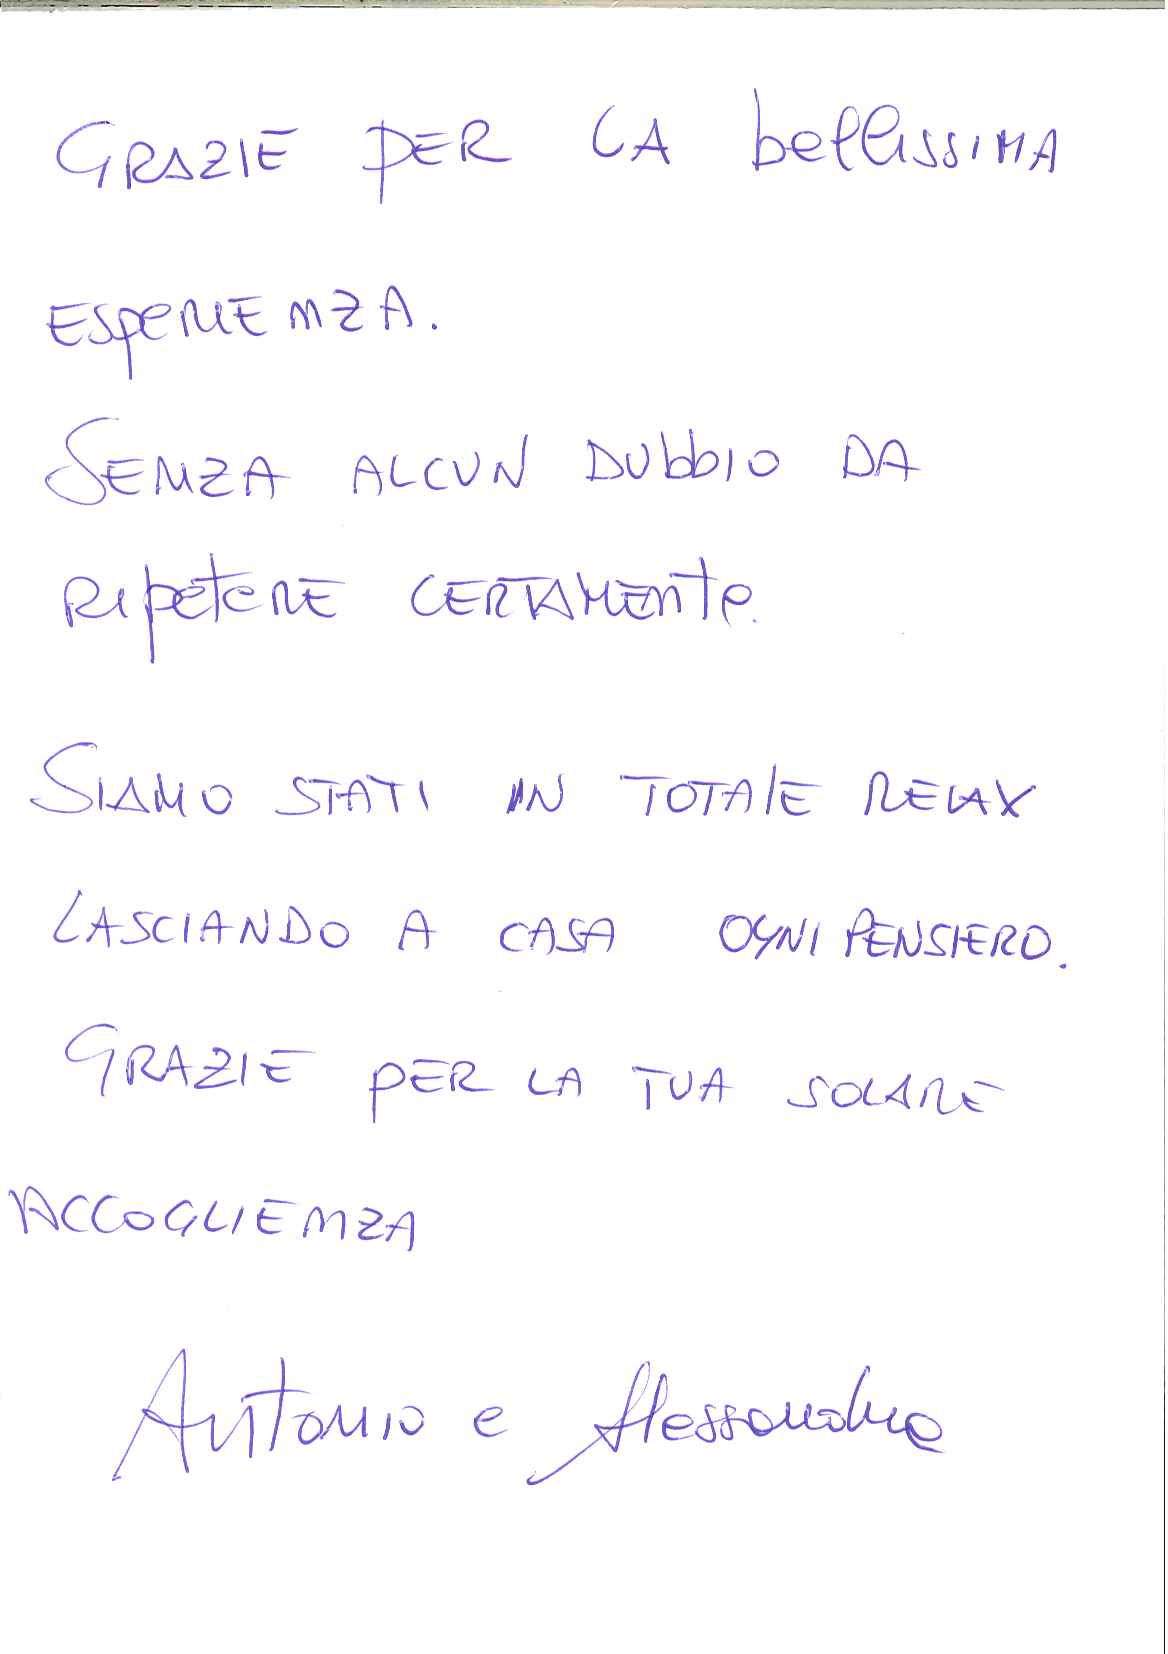 GRAZIE PER LA bellissima
ESPERIENZA.
SENZA ALCUN DUBBIO DA
RIPETERE CERTAMENTE.
SIAMO STATI IN TOTALE RELAX
LASCIANDO A CASA OGNI PENSIERO.
GRAZIE PER LA TUA SOLARE
ACCOGLIENZA
Antonio e Alessandra